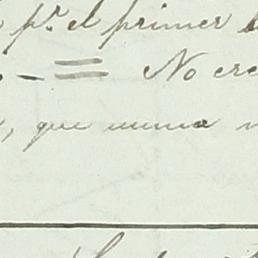 pr. el primer
No cre
, que nunca